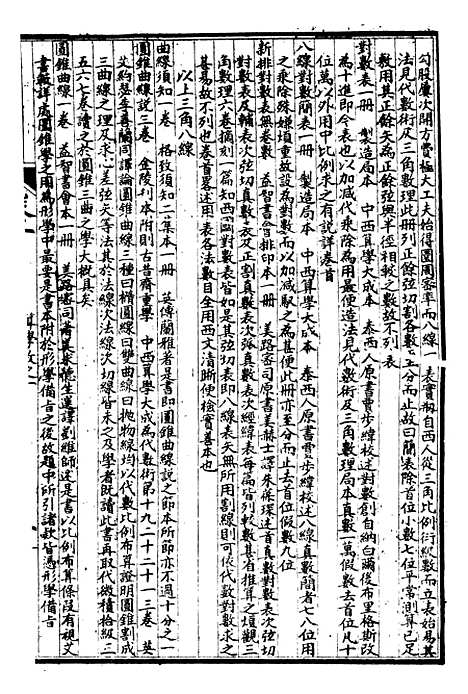 勾股屢次開方費極大工夫始得圜周密率而八線一表實權自西人從三角比例衍級數而立表始易其
法見代數術及三角數理此冊列正餘弦切割各數至分而止故曰簡表除首位小數七位平常測算已足
敷用其正餘矢為正餘弦與半徑相較之數故不列表
對數表一冊 製造局本 中西算學大成本 泰西人原書賈步緯校述對數創自納白爾後布里格斯改
為十進即今表也以加減代乘除為用最便造法見代數術及三角數理局本真數一萬假數去首位凡十
位萬以外用中比例求之有說詳卷首
八線對數簡表一冊 製造局本 中西算學大成本 泰西人原書賈步緯校述八線真數簡者七八位用
之乘除殊嫌煩重故設為對數而以加減馭之為甚便此冊亦至分而止去首位假數九位
新排對數表無卷數 益智書會排印本一冊 美路密司原書美赫士譯朱葆琛述首真數對數表次弦切
對數表及輔表次弦切真數表及正割真數表次張真數表以經緯表每篇皆列較數其省推算之煩觀三
角數理六卷摘刻一篇知西國對數表皆如是其弦切表即八線表矢無所用割線則可依代數對數求之
甚易故不列也卷首畧述用表各法數目全用西文清晰使檢實善本也
以上三角八線
曲線須知一卷 格致須知二集本一冊 英傅蘭雅著是書即圓錐曲線說之節本所節亦不過十分之一
圓錐曲線說三卷 金陵刊本附則古昔齋重學 中西算學大成為代數術第十九二十二十一三卷 英
艾約瑟李善蘭同譯論圓錐曲線三種曰橢圓線曰雙曲線曰拋物線均以代數比例布算證明圓錐割成
三曲線之理及求心差弦矢等法於法線次法線次切線皆未之及學者既讀此書再取代微積拾級三
五六七卷讀之於圓錐三曲之學大概具矣
圓錐曲線一卷 益智書會本一冊 美路密司著美求德生選譯劉維師述是書以比例布算條段有視艾
書較詳處圜錐學之用為形學中最要是書本附於形學備旨之後故題中所引諸款皆憑形學備旨